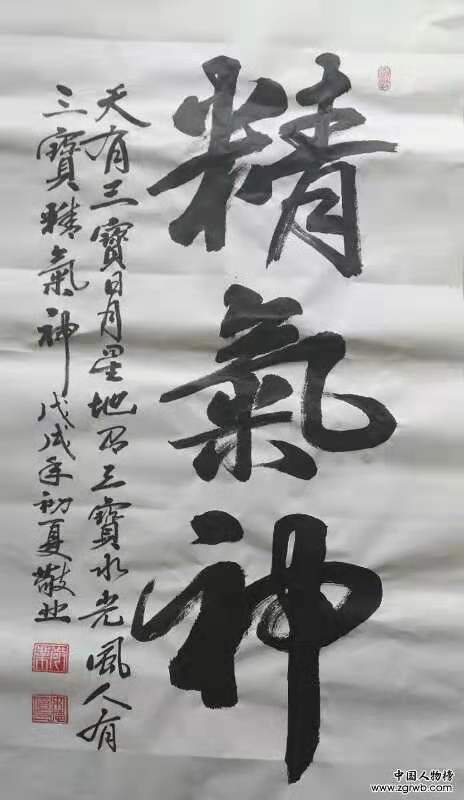 精氣神
天有三寶日月星地有三寶水光風人有
三寶精氣神 戊戌年初夏 敬业
中国人物榜
www.zgrwb.com